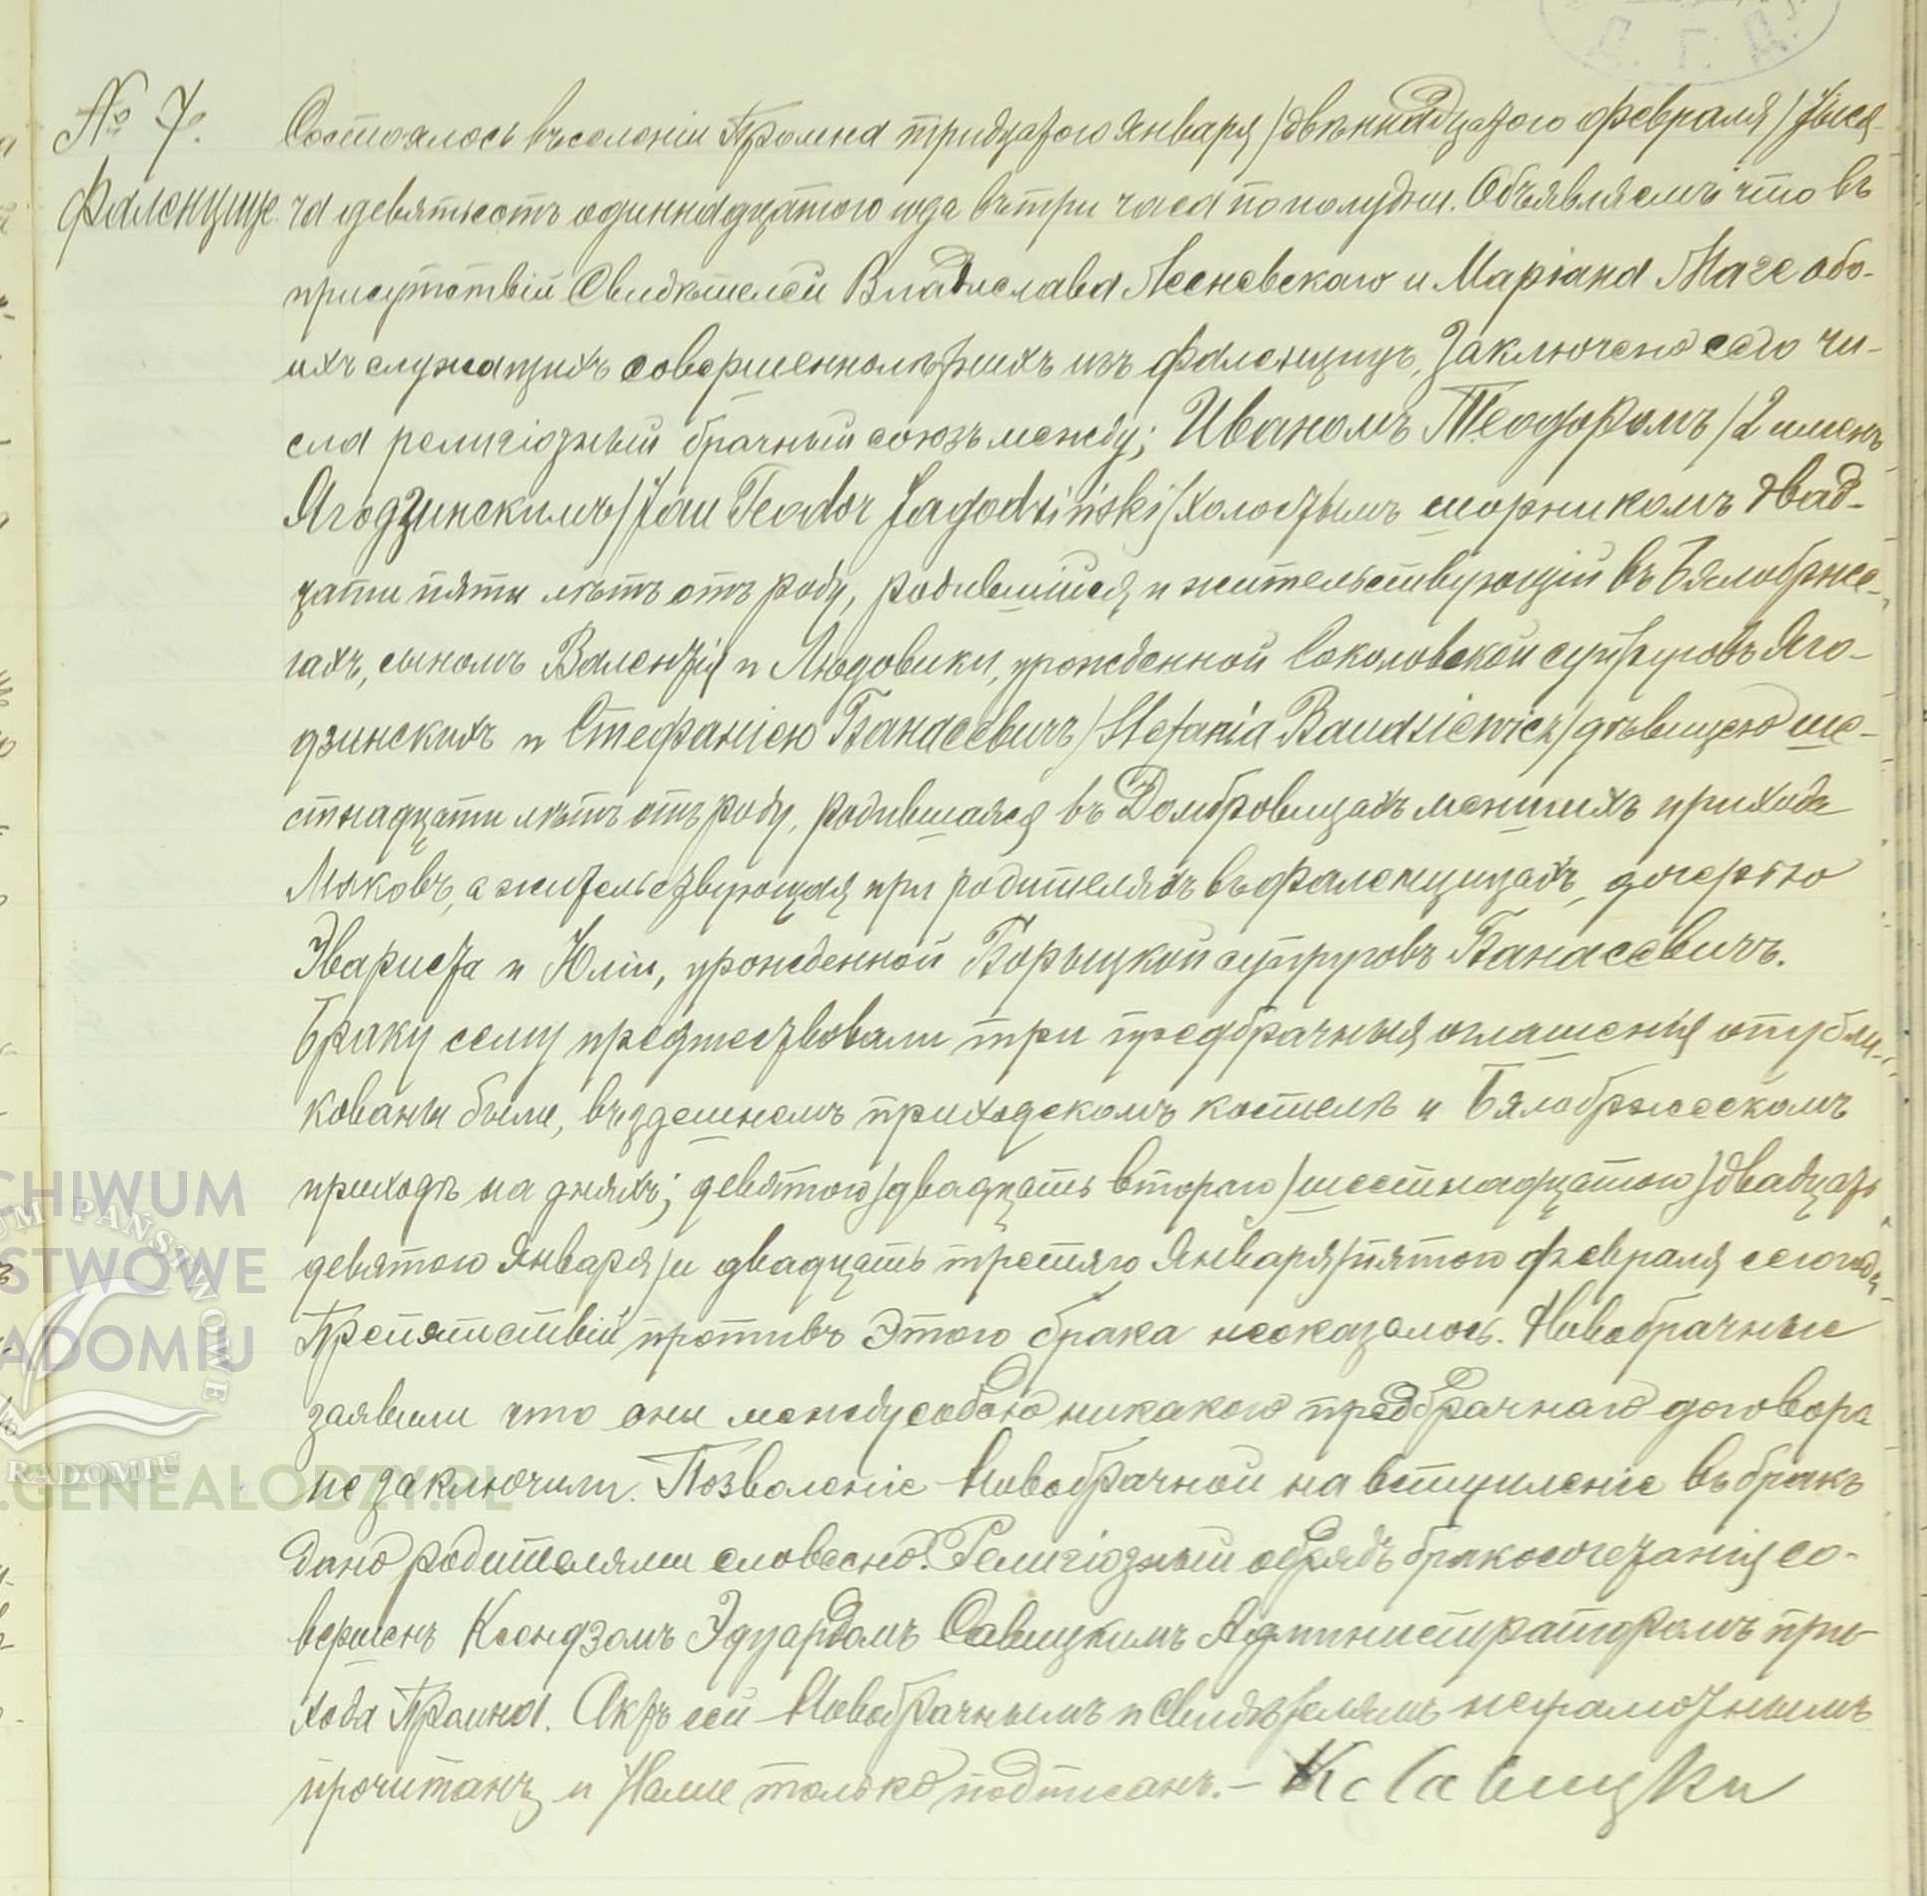 № 7.
Фаленцице.
Состоялось въ селеніи Промна тридцатого Января /двѣннадцатого февраля/ тыся-
ча девятьсотъ одиннадцатого года въ три часа по полудни. Объявляемъ что въ
присутствіи Свидѣтелей Владислава Лесневскаго и Маріана Маге обо-
ихъ служащихъ совершеннолѣтнихъ изъ Фаленцицъ, Заключено сего чи-
сла религіозный брачный союзъ между; Иваномъ Теодоромъ /2 именъ
Ягодзинскимъ /Jan Teodor Jagodziński/ холостымъ шорникомъ двад-
цати пяти лѣтъ отъ роду, родившійся и жительствующій въ Бялобрже-
гахъ, сыномъ Валентія и Людовики, урожденной Соколовской супруговъ Яго-
дзинскихъ и Стефаніею Банасевичъ /Stefania Banasiewicz/ дѣвицею ше-
стнадцати лѣтъ отъ роду, родившаяся въ Домбровицахъ меншихъ прихода
Мяковъ, а жительствующая при родителяхъ въ Фаленцицахъ, дочерью
Эвариста и Юліи, урожденной Борыцкой супруговъ Банасевичъ.
Браку сему предшествовали три предбрачныя оглашенія опубли-
кованы были, въ здешнемъ приходскомъ костелѣ и Бялобржескомъ
приходѣ на дняхъ; девятого /двадцать второго/ шестнадцатого /двадцать
девятого Января/ и двадцать третяго Января /пятого февраля сего года.
Препятствій противъ этого брака неоказалось. Новобрачные
заявили что они между собою никакого предбрачнаго договора
не заключили. Позволеніе Новобрачной на вступленіе въ бракъ
дано родителями словесно. Религіозный обрядъ бракосочетанія со-
вершенъ Ксендзомъ Эдуардомъ Савицкимъ Администраторомъ при-
хода Промна. Актъ сей Новобрачнымъ и Свидѣтелямъ неграмотнымъ
прочитанъ и Нами только подписанъ. – Кс Савицки
CHIWUM
STWOWE
ADOMIU
UM PAŃSTWOWE
RADOMIU
.GENEALODZY.PL